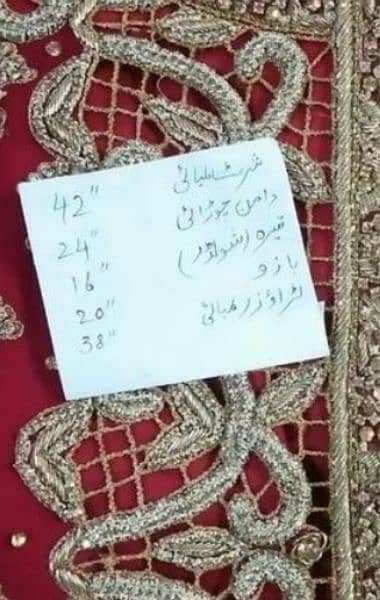 شرٹ لمبائی 42"
دامن چوڑائی 24"
تیرہ (شولڈر) 16"
بازو 20"
ٹراؤزر لمبائی 38"